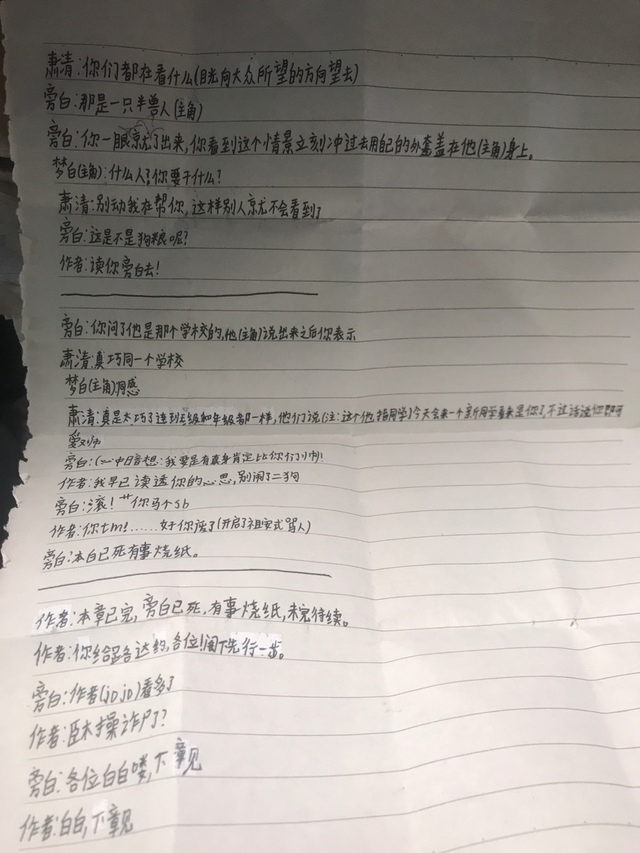 萧清:你们都在看什么(目光向大众所望的方向望去)
旁白:那是一只半兽人(主角)
旁白:你一眼就了出来,你看到这个情景立刻冲过去用自己的外套盖在他(主角)身上。
梦白(主角):什么人?你要干什么?
萧清:别动我在帮你,这样别人就不会看到了
旁白:这是不是狗粮呢?
作者:读你旁白去!
旁白:你问了他是那个学校的,他(主角)说出来之后你表示
萧清:真巧同一个学校
梦白(主角)同感
萧清:真是太巧了连班级和年级都一样,他们说(注:这个他指同学)今天会来一个新同学看来是你了,不过话说你即可
旁白:(心中暗想:我要是有真身肯定比你们帅!
作者:我早已读透你的心思,别闹了二狗
旁白:滚!艹你马个sb
作者:你tm!……好你读了(开启了祖宗式骂人)
旁白:本白已死有事烧纸。
作者:本章已完,旁白已死,有事烧纸,未完待续。
作者:你给路各达哟,各位!阁下先行一步。
旁白:作者(jojo)看多了
作者:臣木操诈尸了?
旁白:各位白白喽,下章见
作者:白白,下章见